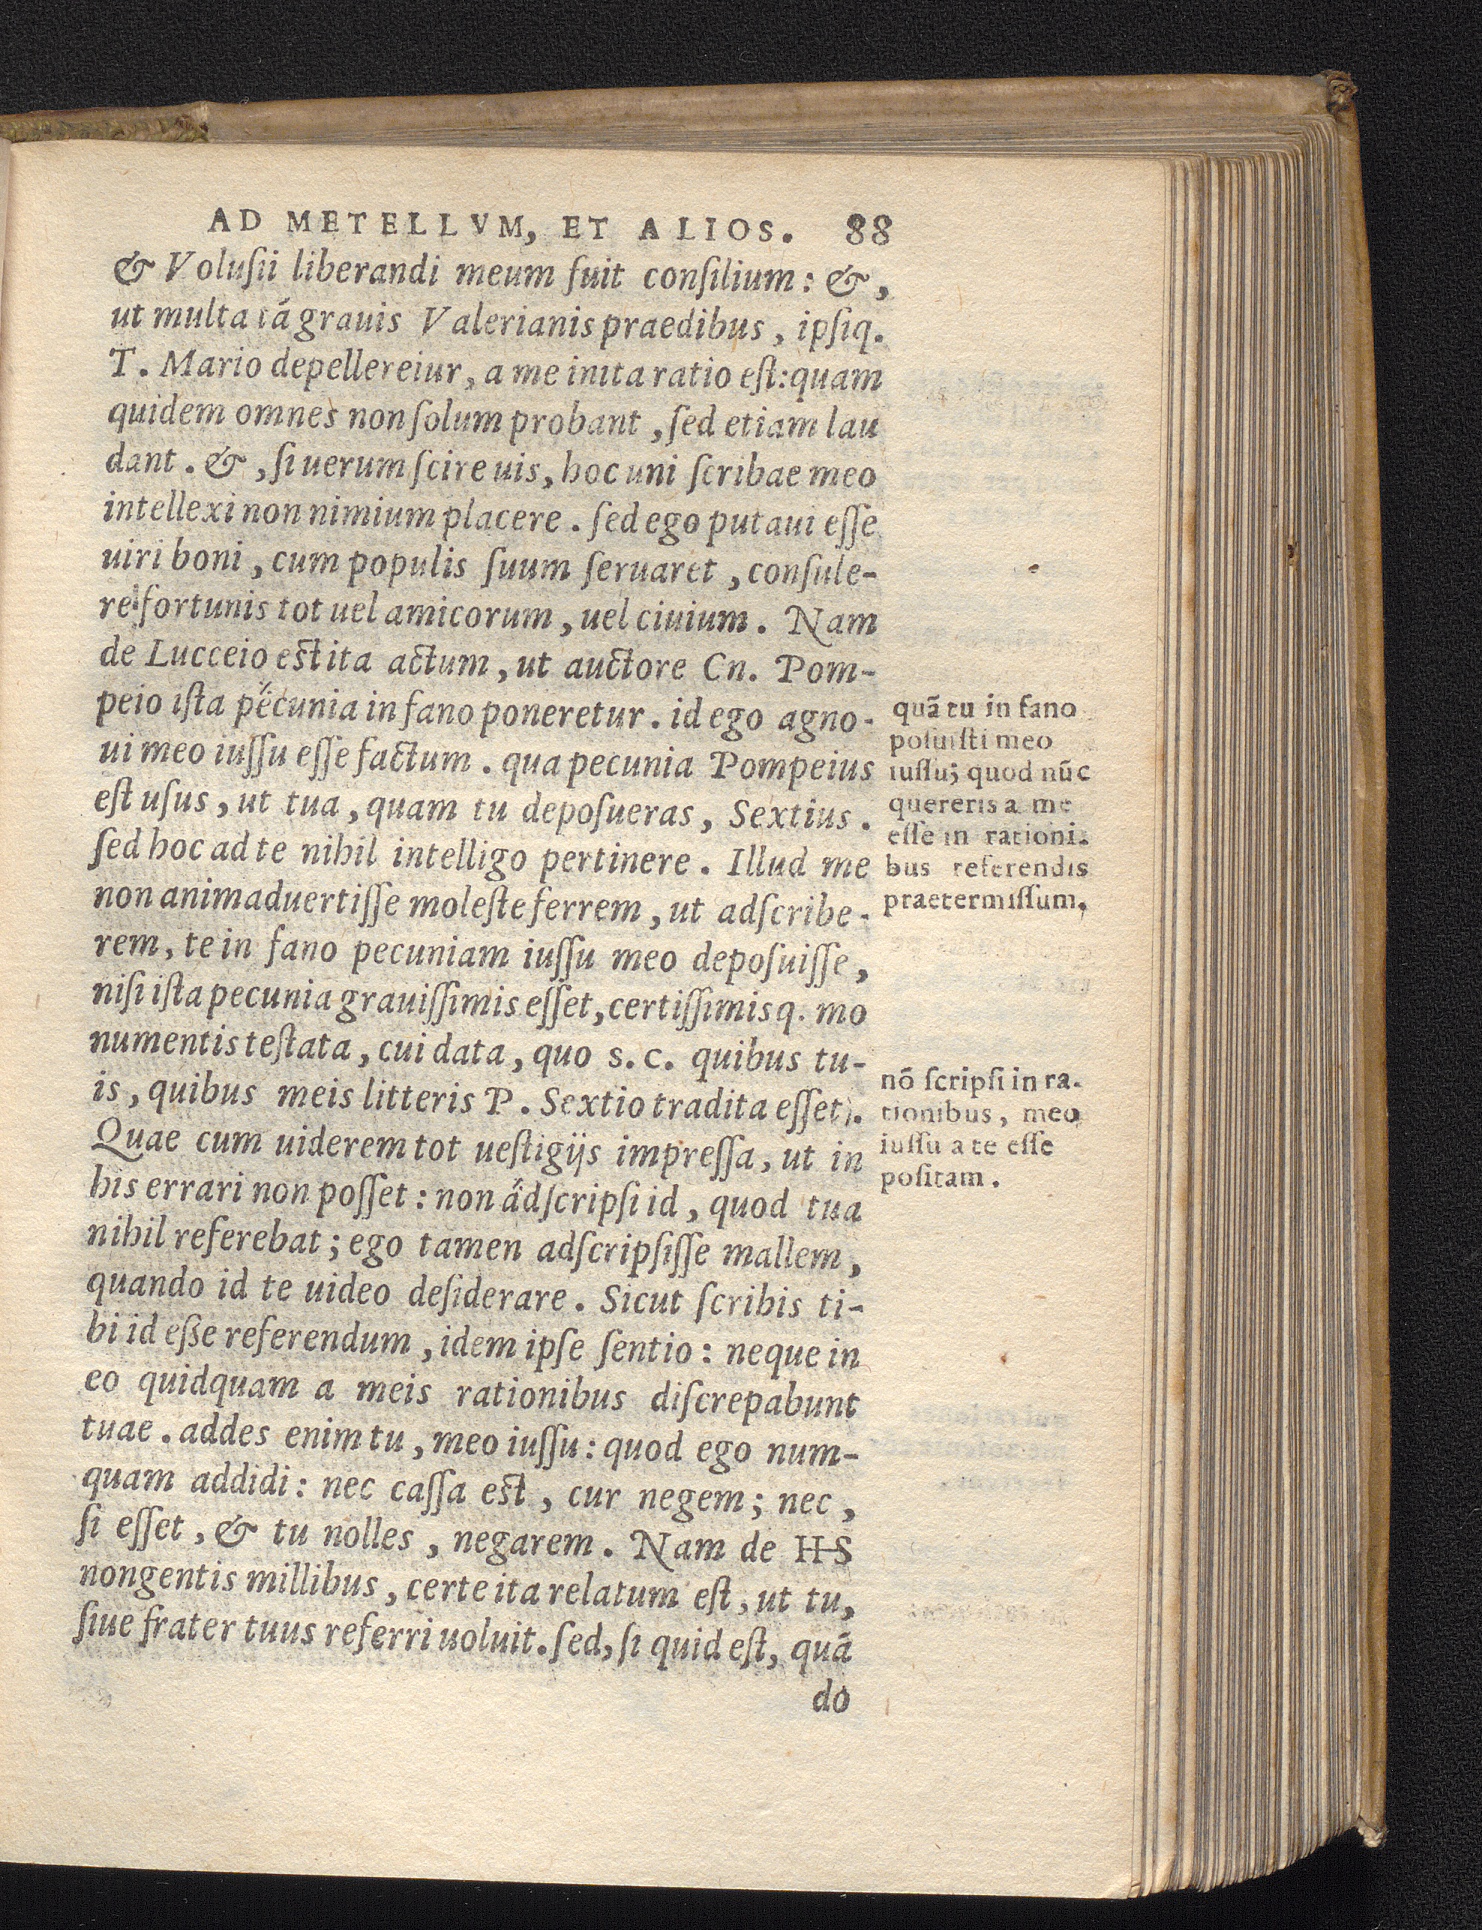 AD METELLVM, ET ALIOS. 88
& Volusii liberandi meum fuit consilium: &,
ut multa tā grauis Valerianis praedibus, ipsiq.
T. Mario depelleretur, a me inita ratio est: quam
quidem omnes non solum probant, sed etiam lau
dant. &, si uerum scire uis, hoc uni scribae meo
intellexi non nimium placere. sed ego putaui esse
uiri boni, cum populis suum seruaret, consule-
re fortunis tot uel amicorum, uel ciuium. Nam
de Lucceio est ita actum, ut auctore Cn. Pom-
peio ista pecunia in fano poneretur. id ego agno-
ui meo iussu esse factum. qua pecunia Pompeius
est usus, ut tua, quam tu deposueras, Sextius.
sed hoc ad te nihil intelligo pertinere. Illud me
non animaduertisse moleste ferrem, ut adscribe-
rem, te in fano pecuniam iussu meo deposuisse,
nisi ista pecunia grauissimis esset, certissimisq. mo
numentis testata, cui data, quo s. c. quibus tu-
is, quibus meis litteris P. Sextio tradita esset.
Quae cum uiderem tot uestigijs impressa, ut in
his errari non posset: non ''adscripsi id, quod tua
nihil referebat; ego tamen adscripsisse mallem,
quando id te uideo desiderare. Sicut scribis ti-
bi id esse referendum, idem ipse sentio: neque in
eo quidquam a meis rationibus discrepabunt
tuae. addes enim tu, meo iussu: quod ego num-
quam addidi: nec cassa est, cur negem; nec,
si esset, & tu nolles, negarem. Nam de HS
nongentis millibus, certe ita relatum est, ut tu,
siue frater tuus referri uoluit. sed, si quid est, quā
do
quā tu in fano
posuisti meo
iussu; quod nūc
quereris a me
esse in rationi-
bus referendis
praetermissum.
nō scripsi in ra-
tionibus, meo
iussu a te esse
positam.